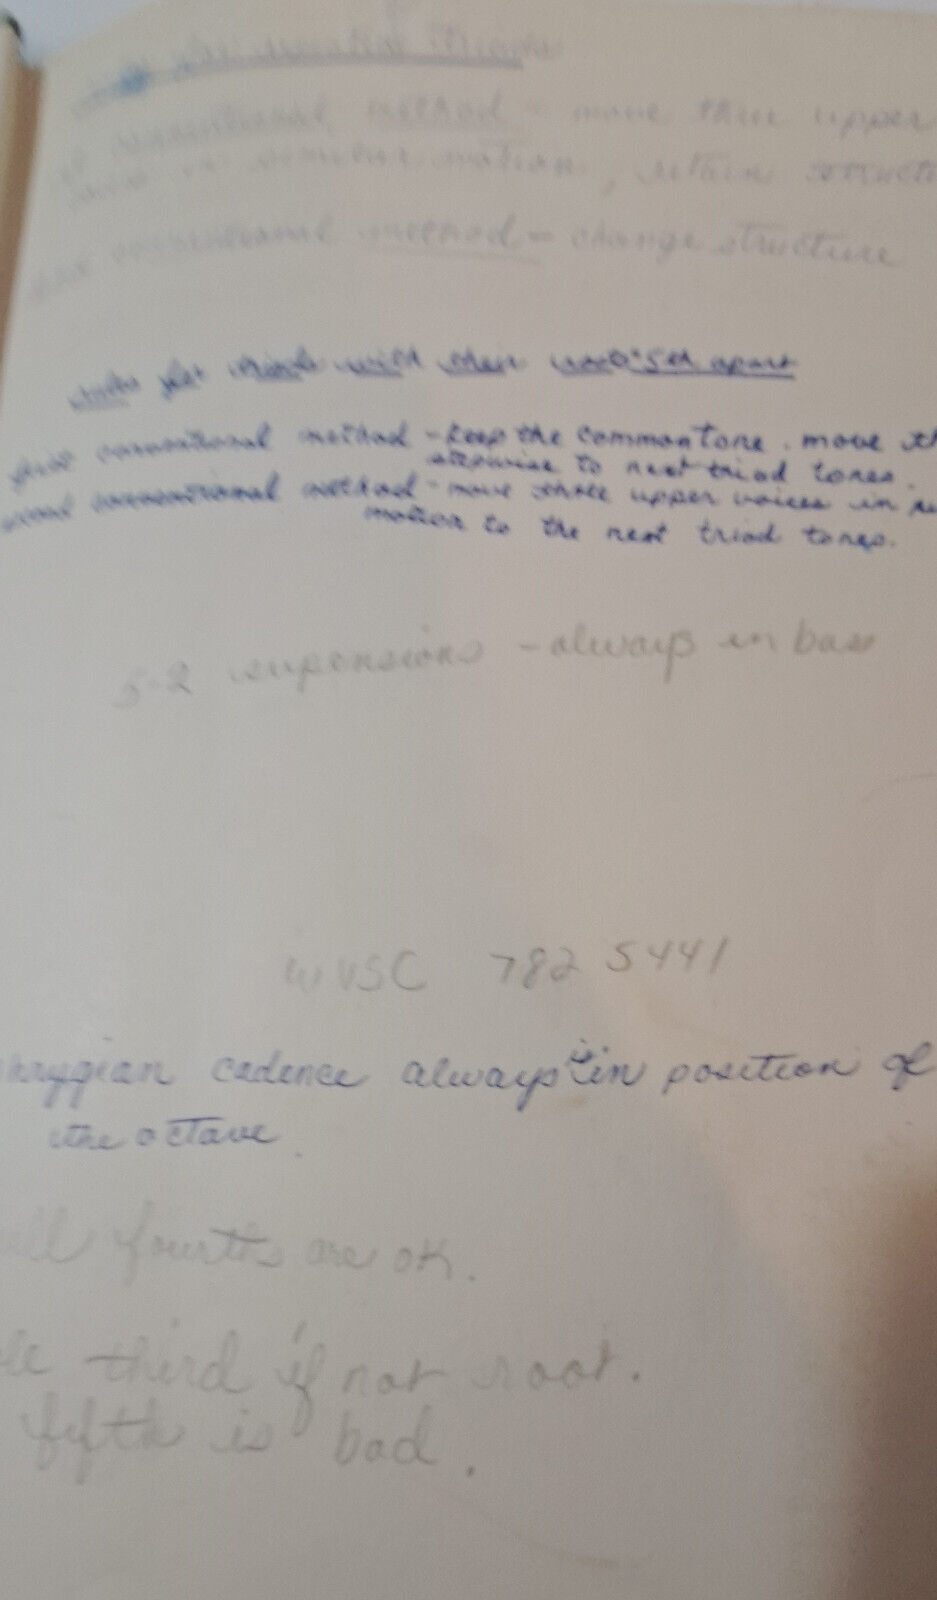 for repeated triads
conventional method - move three upper
motion, retain structure
conventional method - change structure
rules for triads with their roots 5th apart
first conventional method - keep the common tone. move th
stepwise to next triad tones.
second conventional method - move three upper voices in
motion to the next triad tones.
5-2 suspensions - always in bass
WVSC 782 5441
hrygian cadence always is in position of
the octave
all fourths are OK.
le third if not root.
fifth is bad.